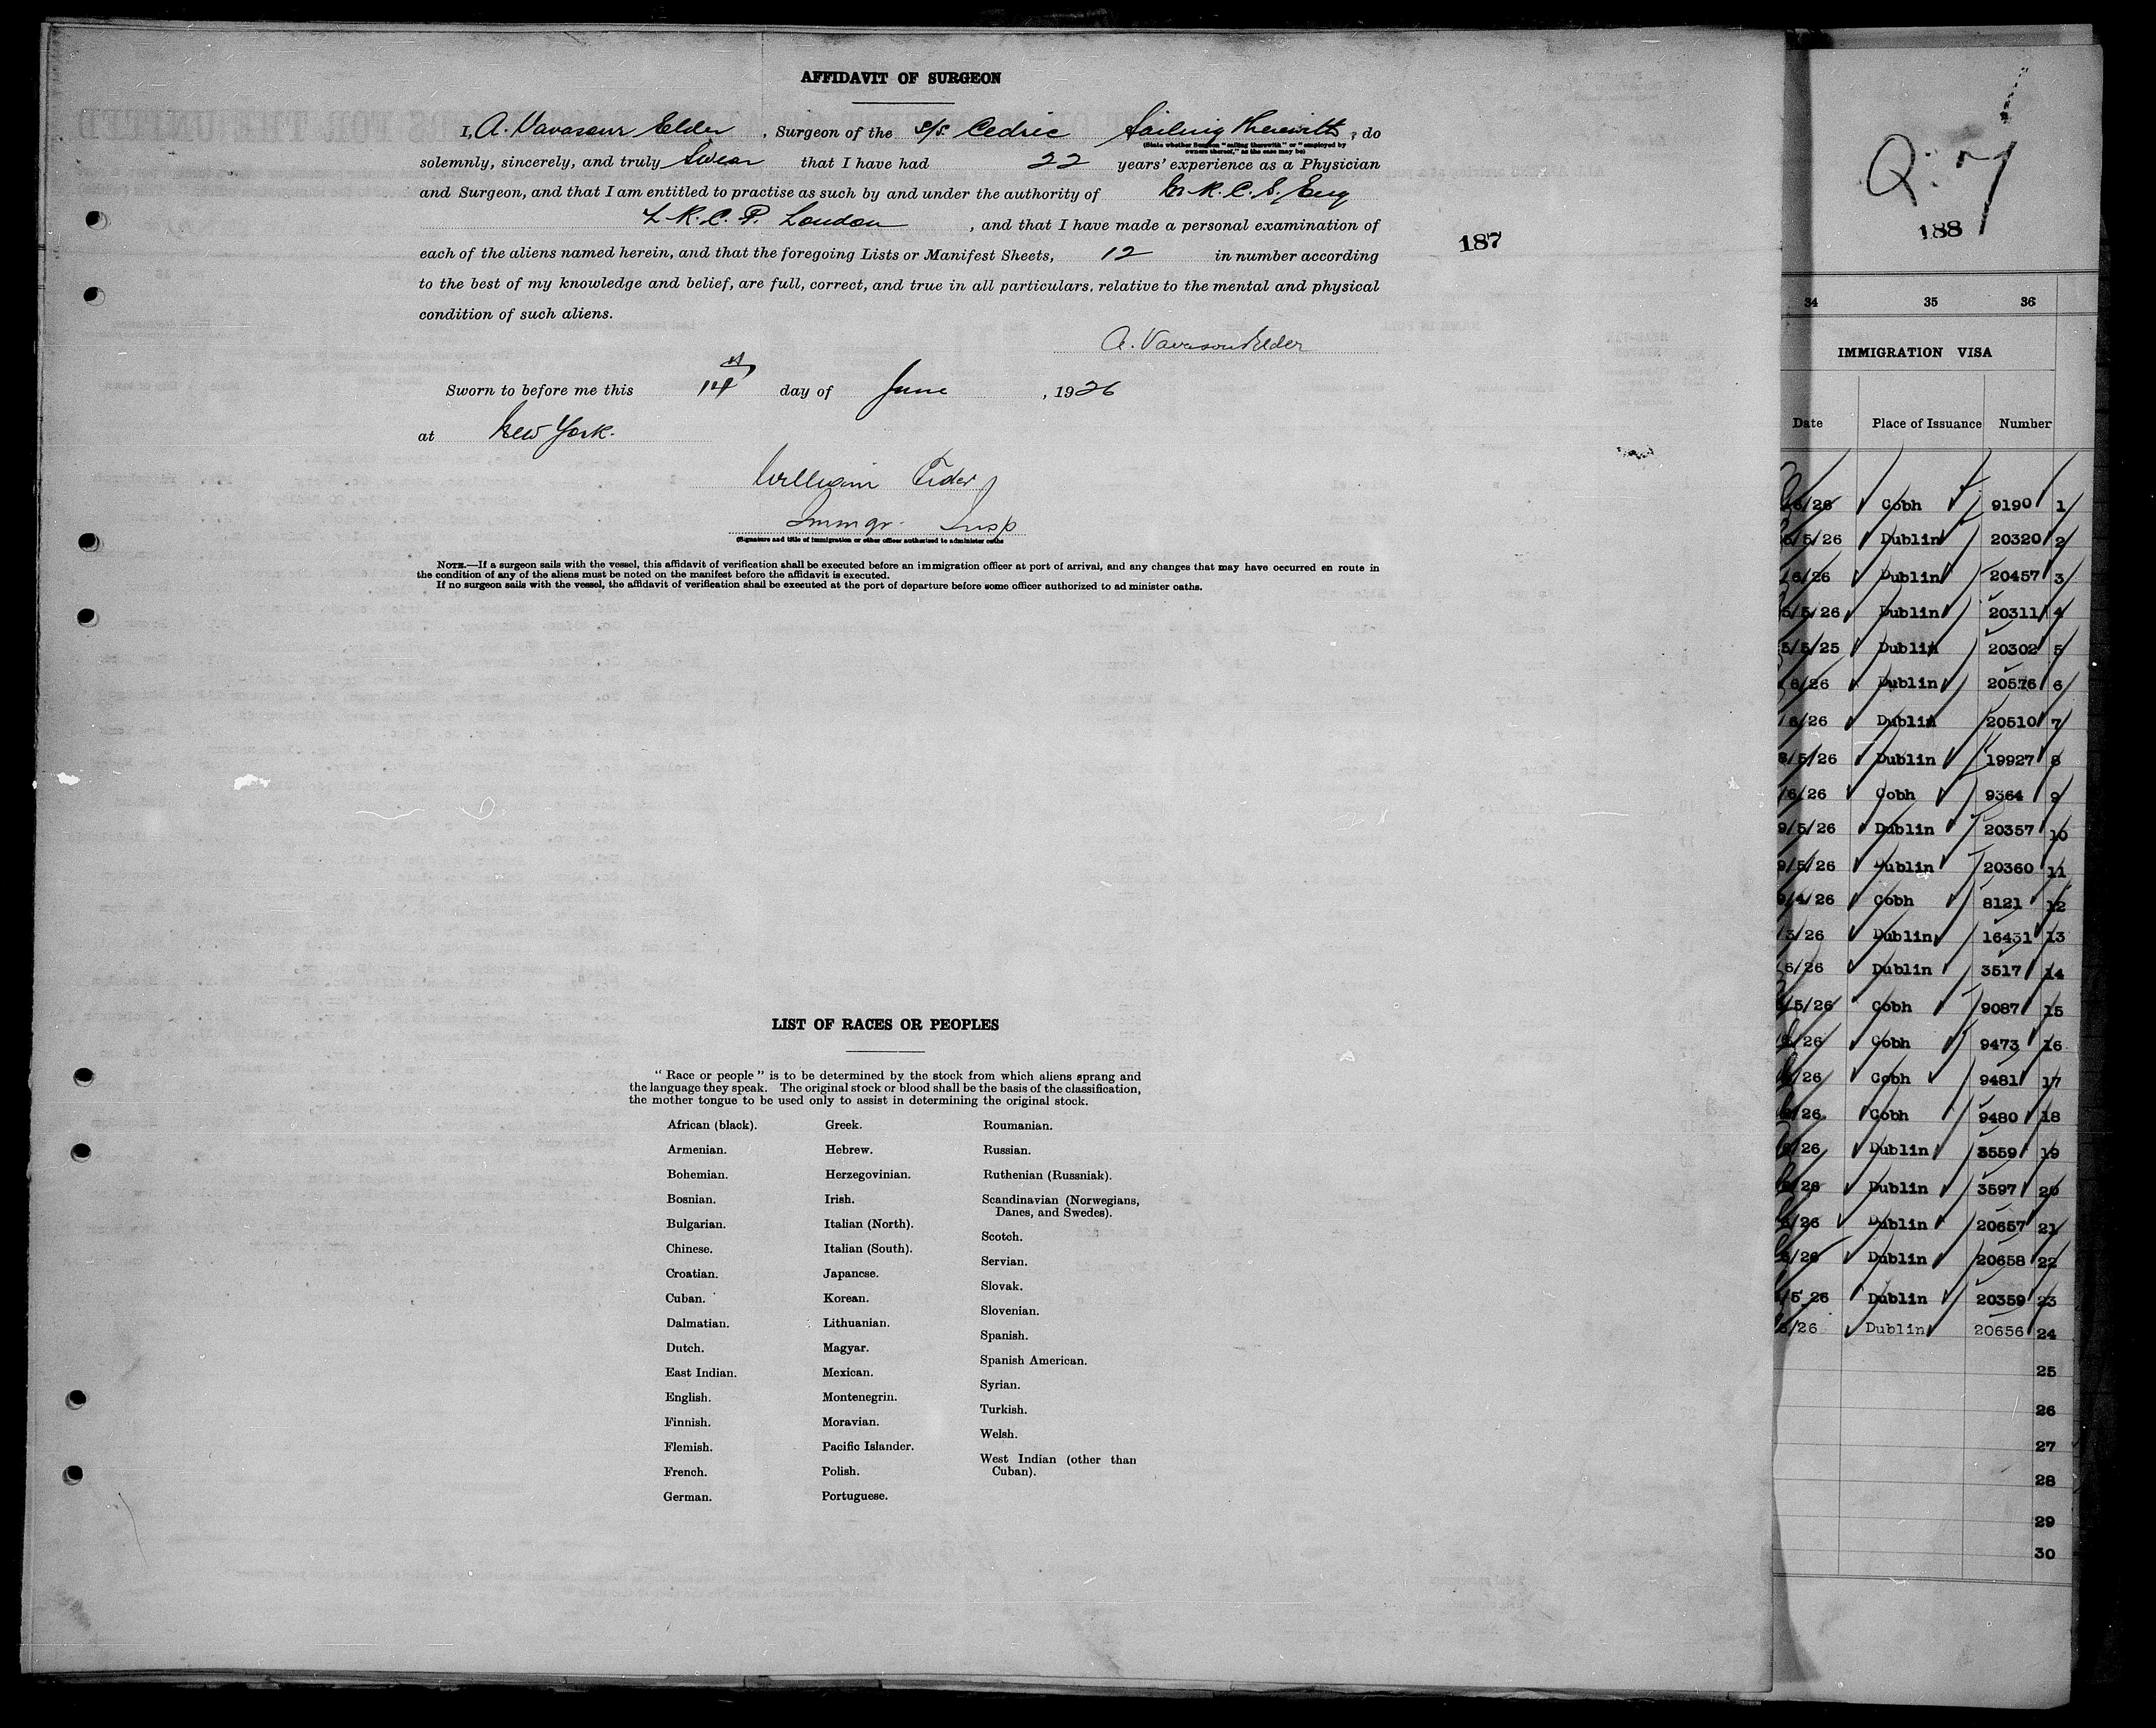 AFFIDAVIT OF SURGEON
I, A. Vavasour Elder, Surgeon of the s/s. Cedric Sailing Therewith, do
(State whether Surgeon "sailing therewith" or "employed by
owners thereof," as the case may be)
solemnly, sincerely, and truly Swear that I have had 22 years' experience as a Physician
and Surgeon, and that I am entitled to practise as such by and under the authority of M.R.C.S. Eng
L.R.C.P. London, and that I have made a personal examination of
each of the aliens named herein, and that the foregoing Lists or Manifest Sheets, 12 in number according
to the best of my knowledge and belief, are full, correct, and true in all particulars, relative to the mental and physical
condition of such aliens.
A. Vavasour Elder
Sworn to before me this 14th day of June, 1926
at New York.
William
Immgr. Insp
(Signature and title of immigration or other officer authorized to administer oaths
NOTE.—If a surgeon sails with the vessel, this affidavit of verification shall be executed before an immigration officer at port of arrival, and any changes that may have occurred en route in
the condition of any of the aliens must be noted on the manifest before the affidavit is executed.
If no surgeon sails with the vessel, the affidavit of verification shall be executed at the port of departure before some officer authorized to ad minister oaths.
187
LIST OF RACES OR PEOPLES
"Race or people" is to be determined by the stock from which aliens sprang and
the language they speak. The original stock or blood shall be the basis of the classification,
the mother tongue to be used only to assist in determining the original stock.
African (black).
Armenian.
Bohemian.
Bosnian.
Bulgarian.
Chinese.
Croatian.
Cuban.
Dalmatian.
Dutch.
East Indian.
English.
Finnish.
Flemish.
French.
German.
Greek.
Hebrew.
Herzegovinian.
Irish.
Italian (North).
Italian (South).
Japanese.
Korean.
Lithuanian.
Magyar.
Mexican.
Montenegrin.
Moravian.
Pacific Islander.
Polish.
Portuguese.
Roumanian.
Russian.
Ruthenian (Russniak).
Scandinavian (Norwegians,
Danes, and Swedes).
Scotch.
Servian.
Slovak.
Slovenian.
Spanish.
Spanish American.
Syrian.
Turkish.
Welsh.
West Indian (other than
Cuban).
Q. 7
188
34 35 36
IMMIGRATION VISA
Date Place of Issuance Number
6/26 Cobh 9190 1
5/5/26 Dublin 20320 2
/6/26 Dublin 20457 3
5/5/26 Dublin 20311 4
5/5/25 Dublin 20302 5
6/26 Dublin 20576 6
/6/26 Dublin 20510 7
8/5/26 Dublin 19927 8
/6/26 Cobh 9364 9
9/5/26 Dublin 20357 10
9/5/26 Dublin 20360 11
9/4/26 Cobh 8121 12
/3/26 Dublin 16431 13
6/26 Dublin 3517 14
/5/26 Cobh 9087 15
/26 Cobh 9473 16
/26 Cobh 9481 17
/26 Cobh 9480 18
/26 Dublin 3559 19
/26 Dublin 3597 20
/26 Dublin 20657 21
/26 Dublin 20658 22
/5 26 Dublin 20359 23
/26 Dublin 20656 24
25
26
27
28
29
30